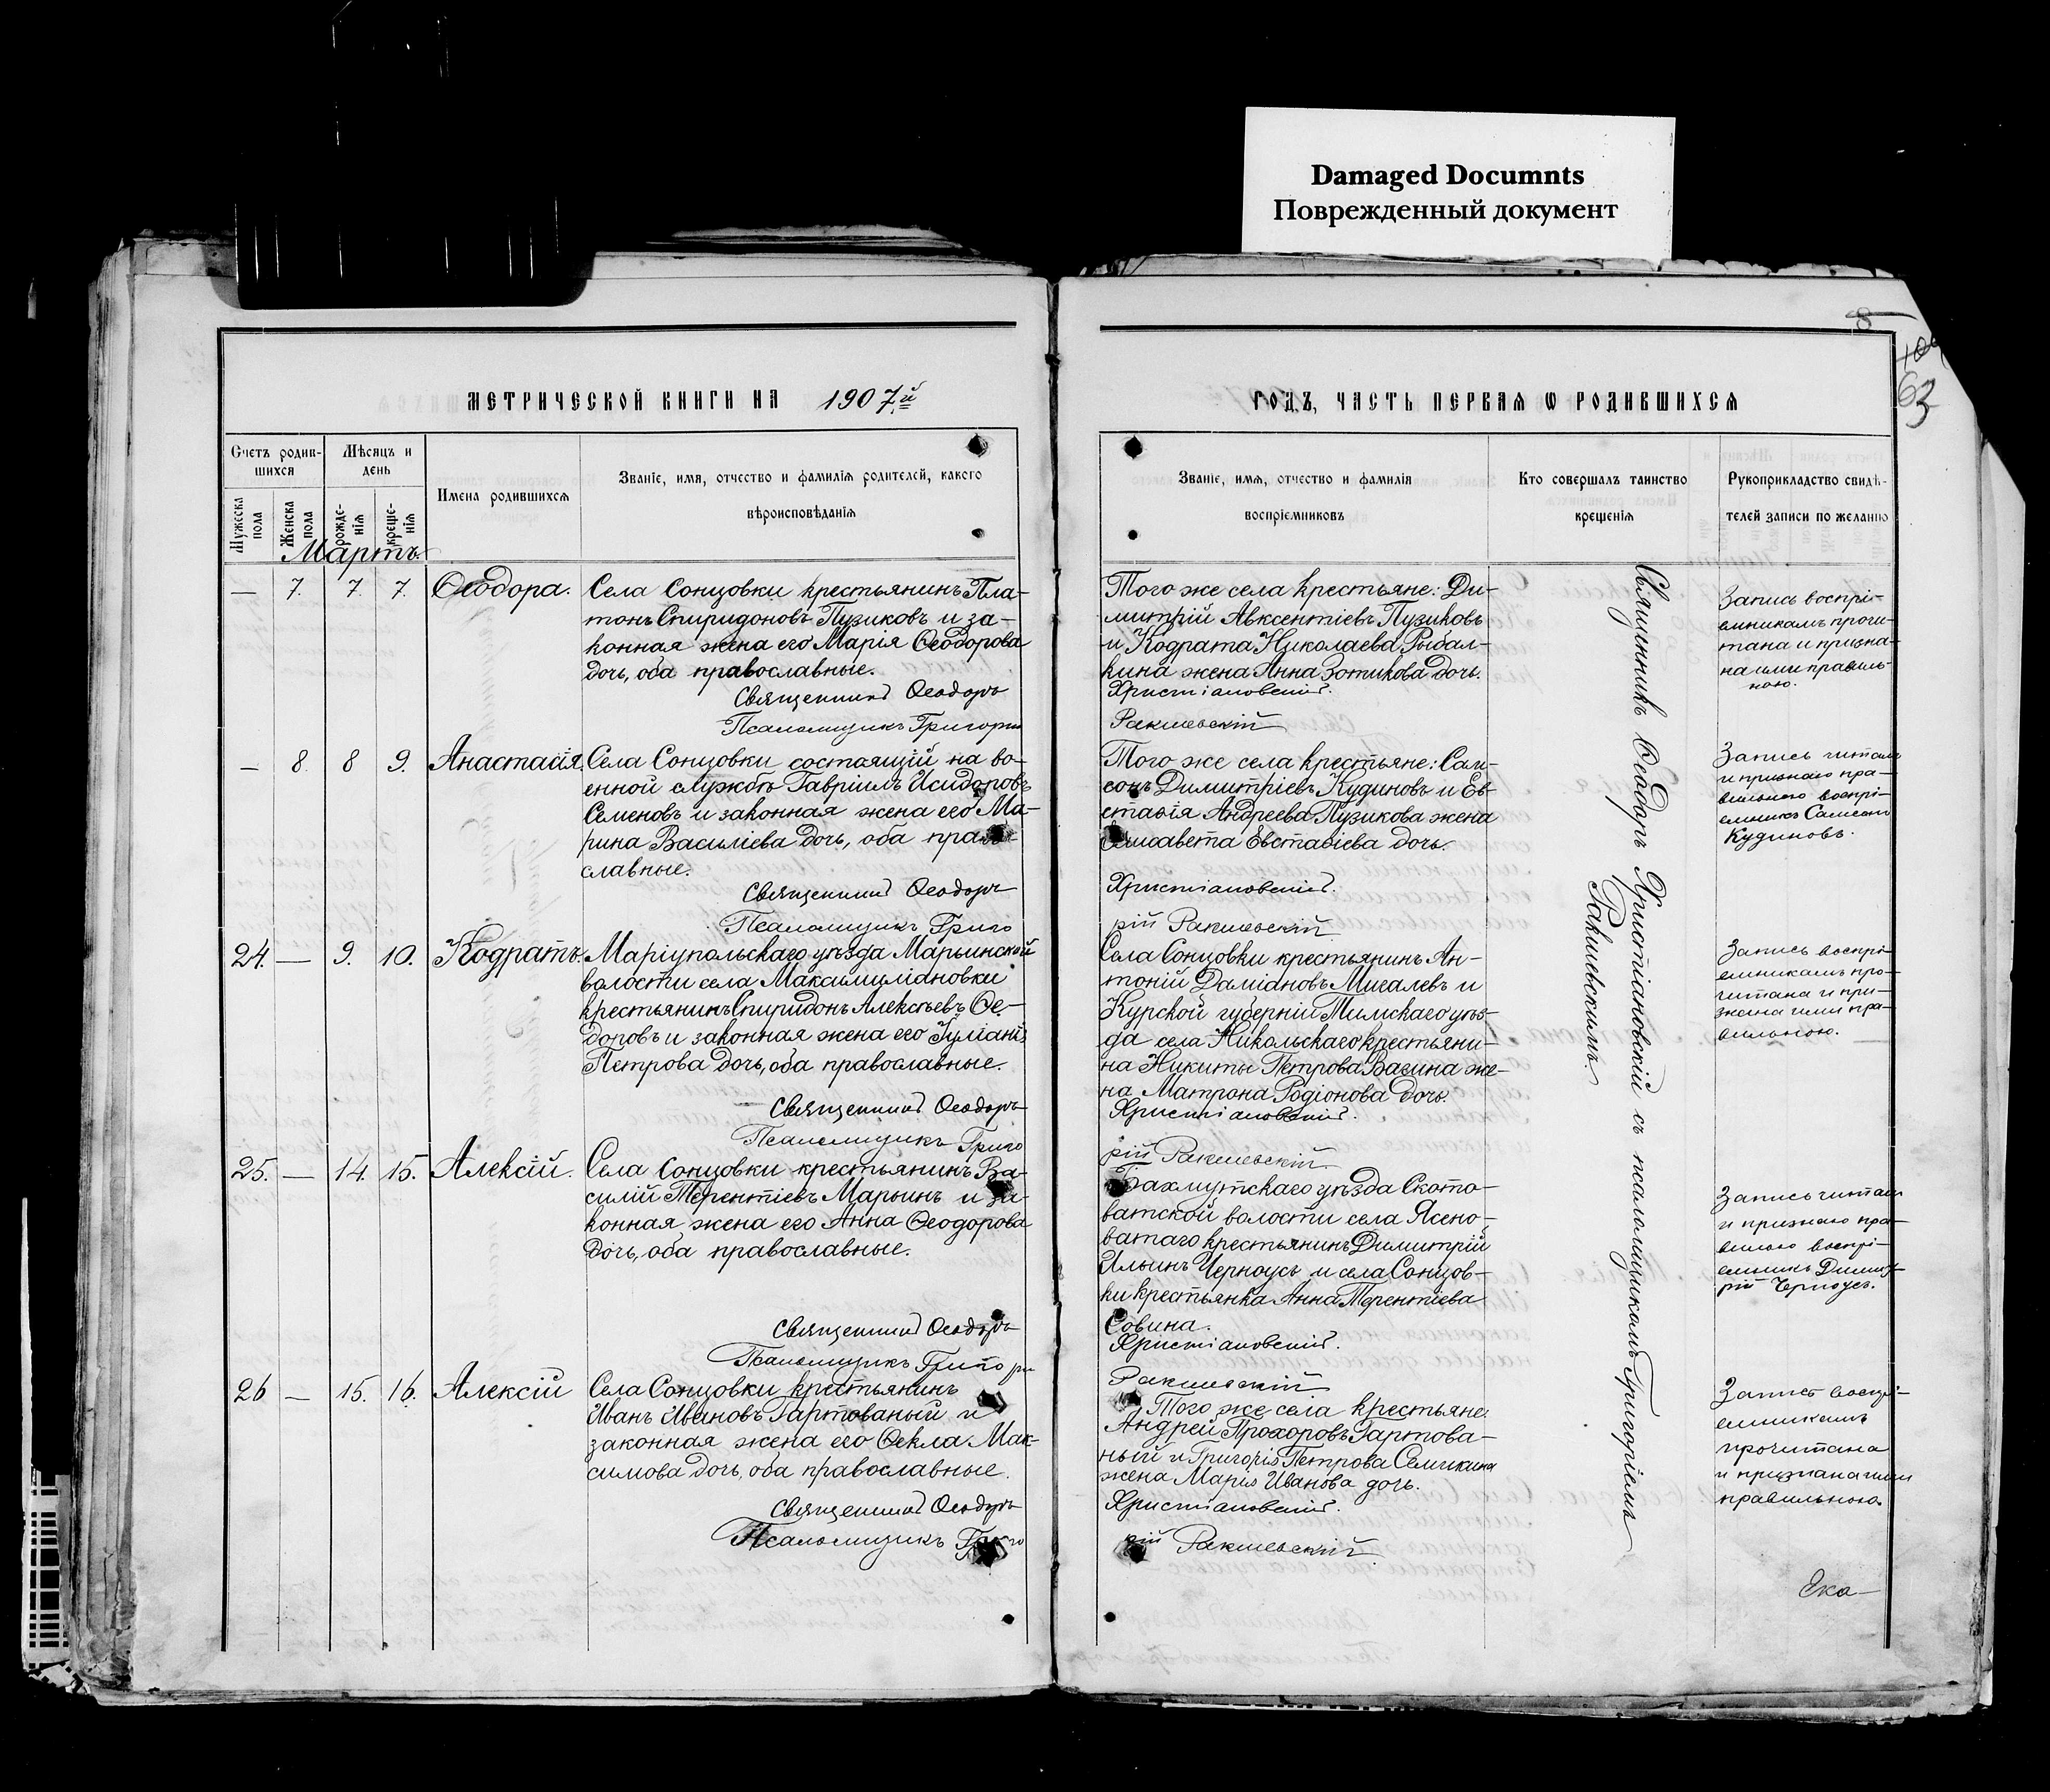 Damaged Documnts
Поврежденный документ
8
63
МЕТРИЧЕСКОЙ КНИГИ НА 1907й
ГОДЪ, ЧАСТЬ ПЕРВАЯ Ѡ РОДИВШИХСЯ
Счетъ родив-
шихся
Мужеска
пола
Женска
пола
Мѣсяцъ и
день
рожде-
нія
креще-
нія
Имена родившихся
Званіе, имя, отчество и фамилія родителей, какого
вѣроисповѣданія
Званіе, имя, отчество и фамилія
воспріемниковъ
Кто совершалъ таинство
крещенія
Рукоприкладство свидѣ-
телей записи по желанію
Мартъ.
— 7. 7. 7. Ѳеодора.
Села Сонцовки крестьянинъ Пла-
тонъ Спиридоновъ Пузиковъ и за-
конная жена его Марія Ѳеодорова
дочь, оба православные.
Священникъ Ѳеодоръ
Псаломщикъ Григорій
Того же села крестьяне: Ди-
митрій Авксентіевъ Пузиковъ
и Кодрата Николаева Рыбал-
кина жена Анна Зотикова дочь.
Христіановскій.
Ракшевскій
Запись воспрі-
емникамъ прочи-
тана и призна-
на ими правиль-
ною.
— 8. 8 9. Анастасія.
Села Сонцовки состоящій на во-
енной службѣ Гавріилъ Исидоровъ
Семеновъ и законная жена его Ма-
рина Василіева дочь, оба право-
славные.
Священникъ Ѳеодоръ
Псаломщикъ Григо
Того же села крестьяне: Сам-
сонъ Димитріевъ Кудиновъ и Ев-
стафія Андреева Пузикова жена
Елисавета Евстафіева дочь.
Христіановскій.
рій Ракшевскій
Запись читалъ
и призналъ пра-
вильною воспрі-
емникъ Самсонъ
Кудиновъ.
24. — 9. 10. Кодратъ.
Маріупольскаго уѣзда Марьинской
волости села Максимиліановки
крестьянинъ Спиридонъ Алексѣевъ Ѳе-
доровъ и законная жена его Іуліанія
Петрова дочь, оба православные.
Священникъ Ѳеодоръ
Псаломщикъ Григо
Села Сонцовки крестьянинъ Ан-
тоній Даміановъ Мигалевъ и
Курской губерніи Тимскаго уѣз-
да села Никольскаго крестьяни-
на Никиты Петрова Васина же-
на Матрона Родіонова дочь.
Христіановскій.
рій Ракшевскій
Запись воспрі-
емникамъ про-
читана и при-
знана ими пра-
вильною.
25. — 14. 15. Алексій.
Села Сонцовки крестьянинъ Ва-
силій Терентіевъ Марьинъ и за-
конная жена его Анна Ѳеодорова
дочь, оба православные.
Священникъ Ѳеодоръ
Псаломщикъ Григорій
Бахмутскаго уѣзда Ското-
ватской волости села Ясено-
ватаго крестьянинъ Димитрій
Ильинъ Черноусъ и села Сонцов-
ки крестьянка Анна Терентіева
Совина.
Христіановскій.
Ракшевскій
Запись читалъ
и призналъ пра-
вилою воспрі-
емникъ Димит-
рій Черноусъ.
26 — 15. 16. Алексій
Села Сонцовки крестьянинъ
Иванъ Ивановъ Гартованый и
законная жена его Ѳекла Мак-
симова дочь, оба православные.
Священникъ Ѳеодоръ
Псаломщикъ Григо
Того же села крестьяне:
Андрей Прохоровъ Гартова-
ный и Григорія Петрова Семикина
жена Марія Иванова дочь.
Христіановскій.
рій Ракшевскій
Запись воспрі-
емникамъ
прочитана
и признана ими
правильною.
Священникъ Ѳеодоръ Христіановскій съ псаломщикомъ Григоріемъ
Ракшевскимъ.
Ека-